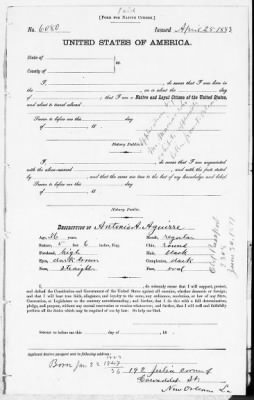 Paid
[FORM FOR NATIVE CITIZEN.]
No. 6080 Issued April 28 1883
UNITED STATES OF AMERICA.
State of
County of } ss.
I, , do swear that I was born in the
, on or about the day of
, that I am a Native and Loyal Citizen of the United States,
and about to travel abroad.
Sworn to before me this day
of , 18 .
Notary Public.
I, , do swear that I am acquainted
with the above-named , and with the facts stated
by , and that the same are true to the best of my knowledge and belief.
Sworn to before me this day
of , 18 .
Notary Public.
DESCRIPTION OF Antonio A. Aguirre
Age, 36 years. Mouth, regular
Stature, 5 feet 6 inches, Eng. Chin, round
Forehead, high Hair, black
Eyes, dark brown Complexion, dark
Nose, straight Face, oval
I, , do solemnly swear that I will support, protect,
and defend the Constitution and Government of the United States against all enemies, whether domestic or foreign;
and that I will bear true faith, allegiance, and loyalty to the same, any ordinance, resolution, or law of any State,
Convention, or Legislature to the contrary notwithstanding; and further, that I do this with a full determination,
pledge, and purpose, without any mental reservation or evasion whatsoever; and further, that I will well and faithfully
perform all the duties which may be required of me by law. So help me God.
Sworn to before me this day
of , 18 .
Notary Public.
Applicant desires Passport sent to following address:
Born Jan 22 1847
36 192 Julia corner of
Carondelet St.
New Orleans La